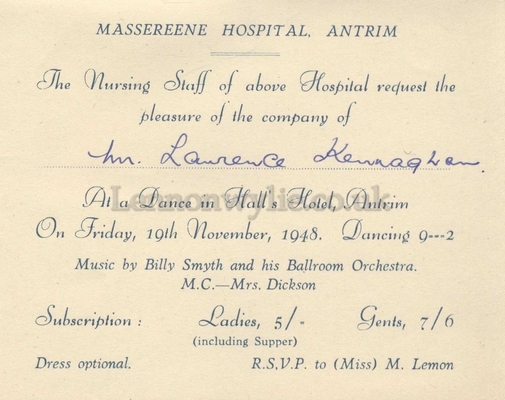 MASSEREENE HOSPITAL, ANTRIM
The Nursing Staff of above Hospital request the
pleasure of the company of
Mr. Lawrence Kennaghan.
At a Dance in Hall's Hotel, Antrim
Lennonwylie.co.uk
On Friday, 19th November, 1948. Dancing 9---2
Music by Billy Smyth and his Ballroom Orchestra.
M.C.—Mrs. Dickson
Subscription : Ladies, 5/- Gents, 7/6
(including Supper)
Dress optional. R.S.V.P. to (Miss) M. Lemon